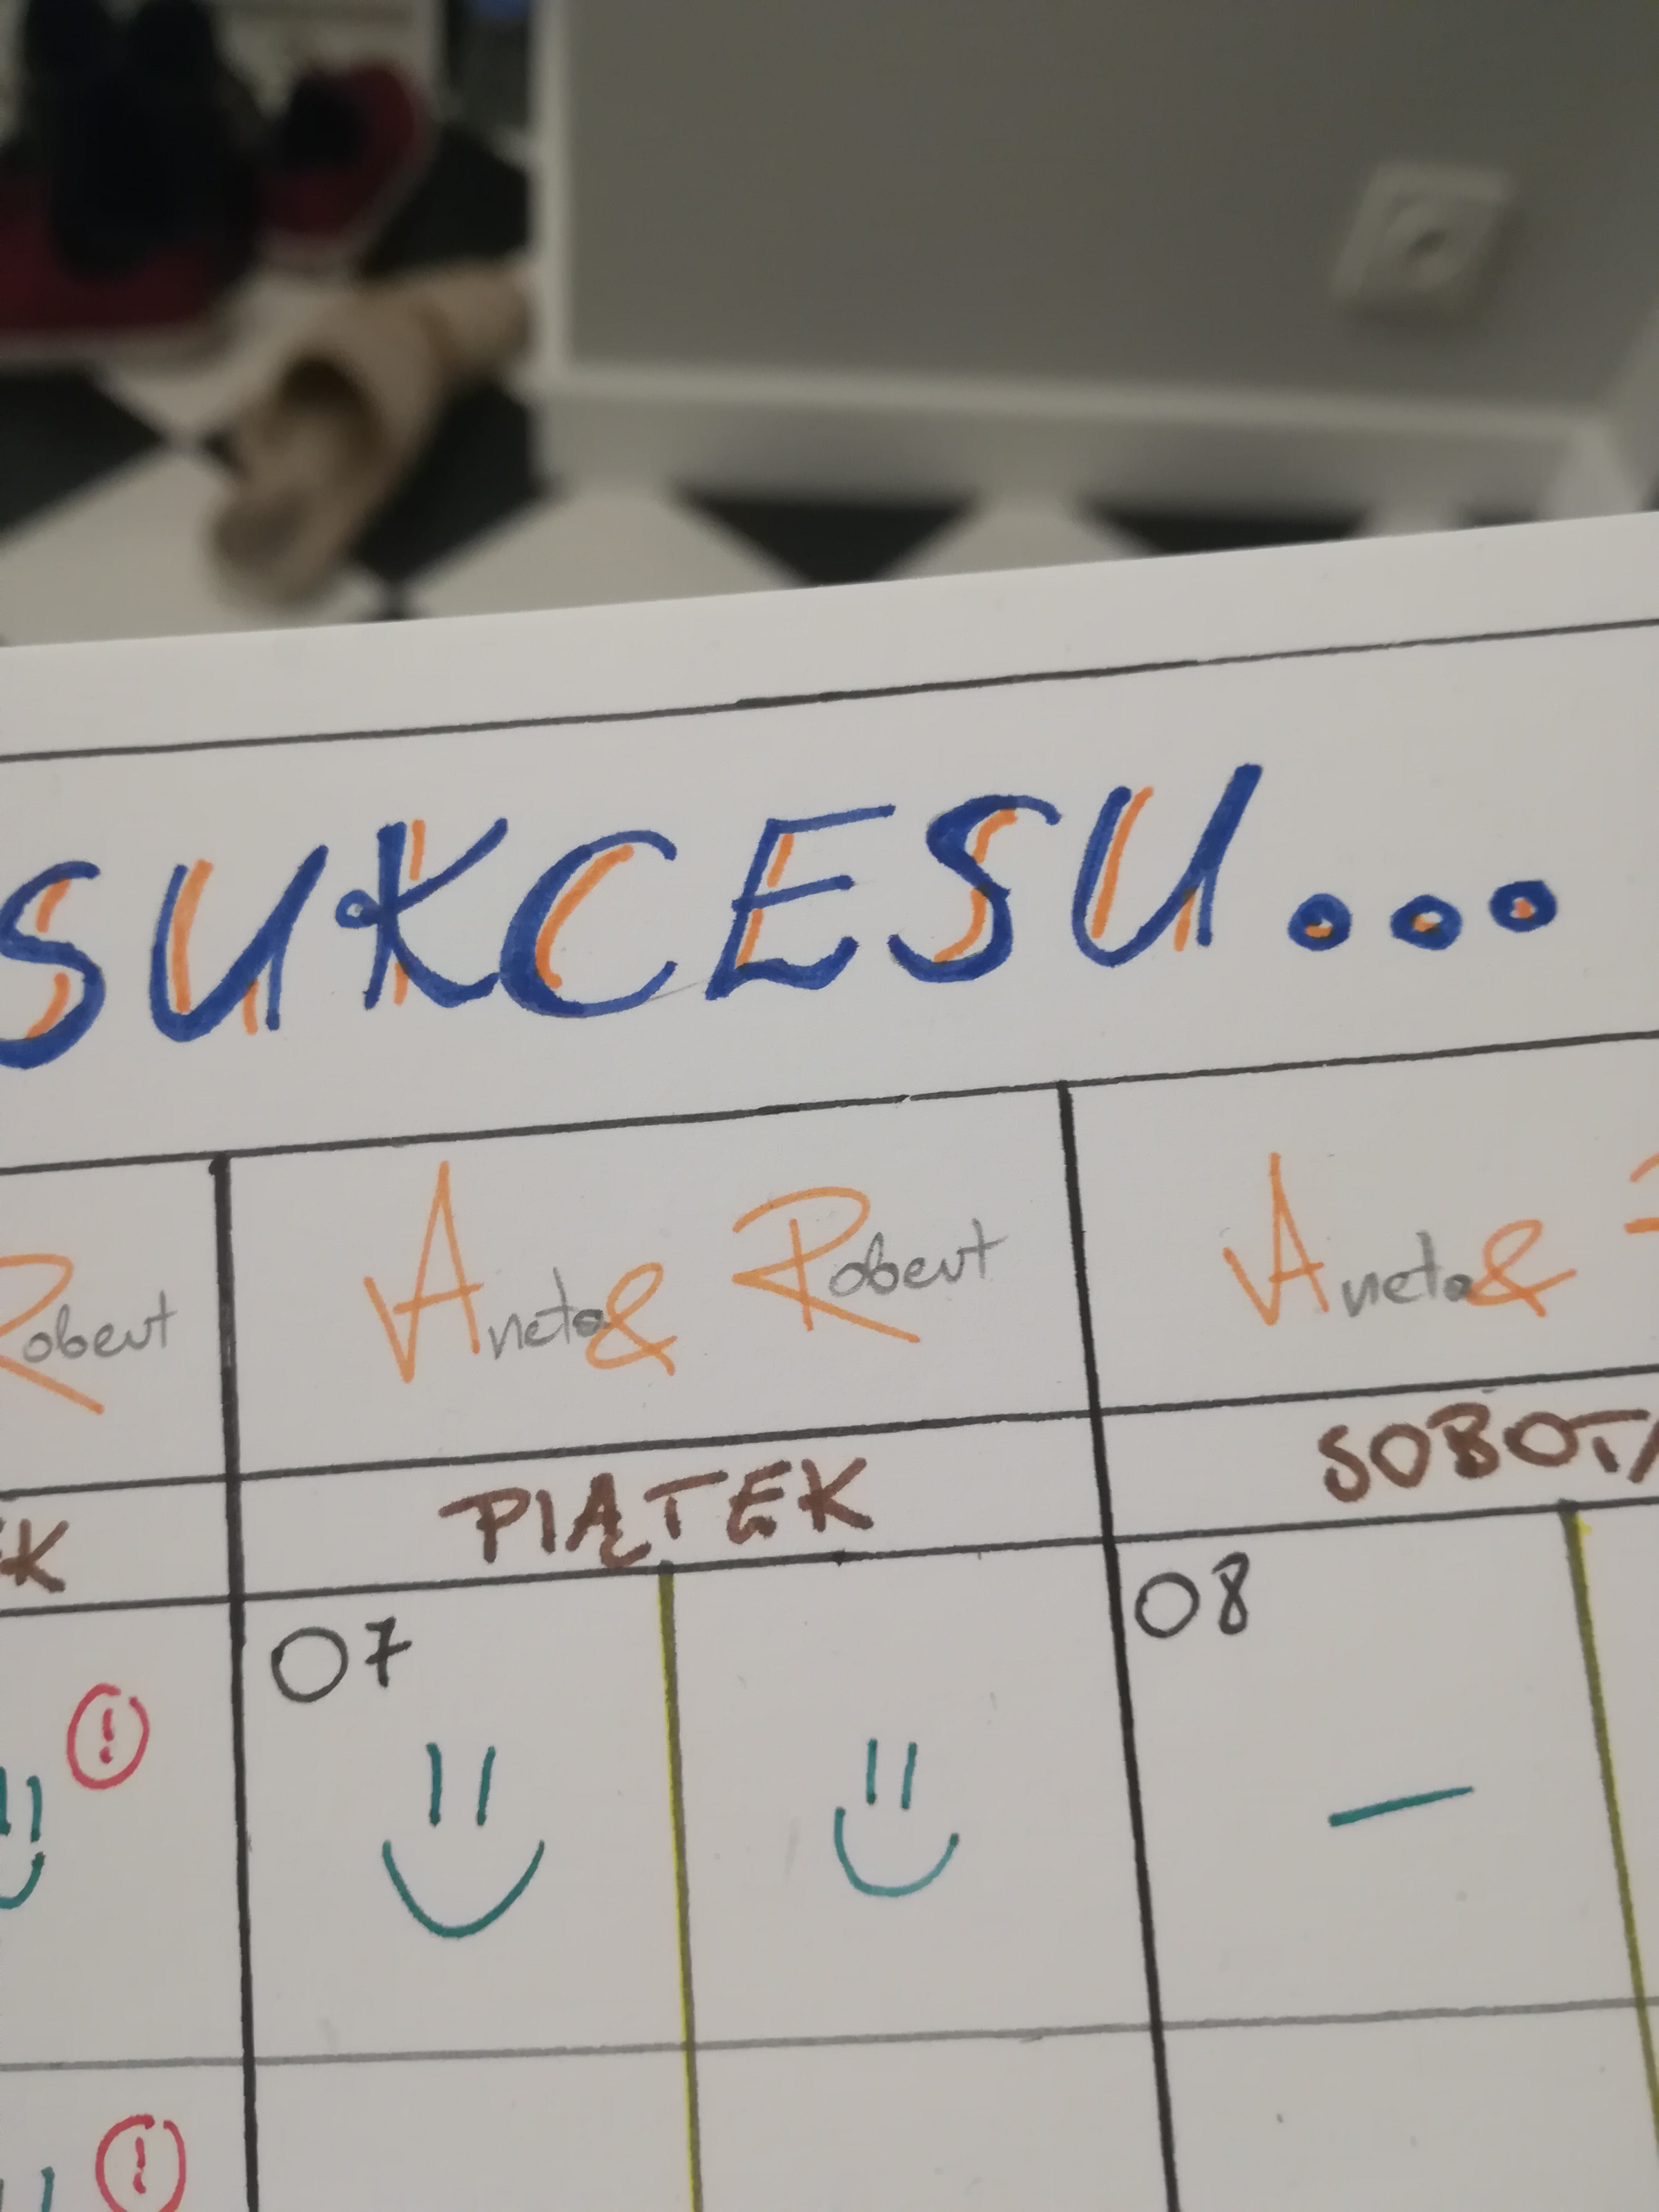 SUKCESU...
Robert Aneta & Robert Aneta &
PIĄTEK SOBOTA
07 08
!
!